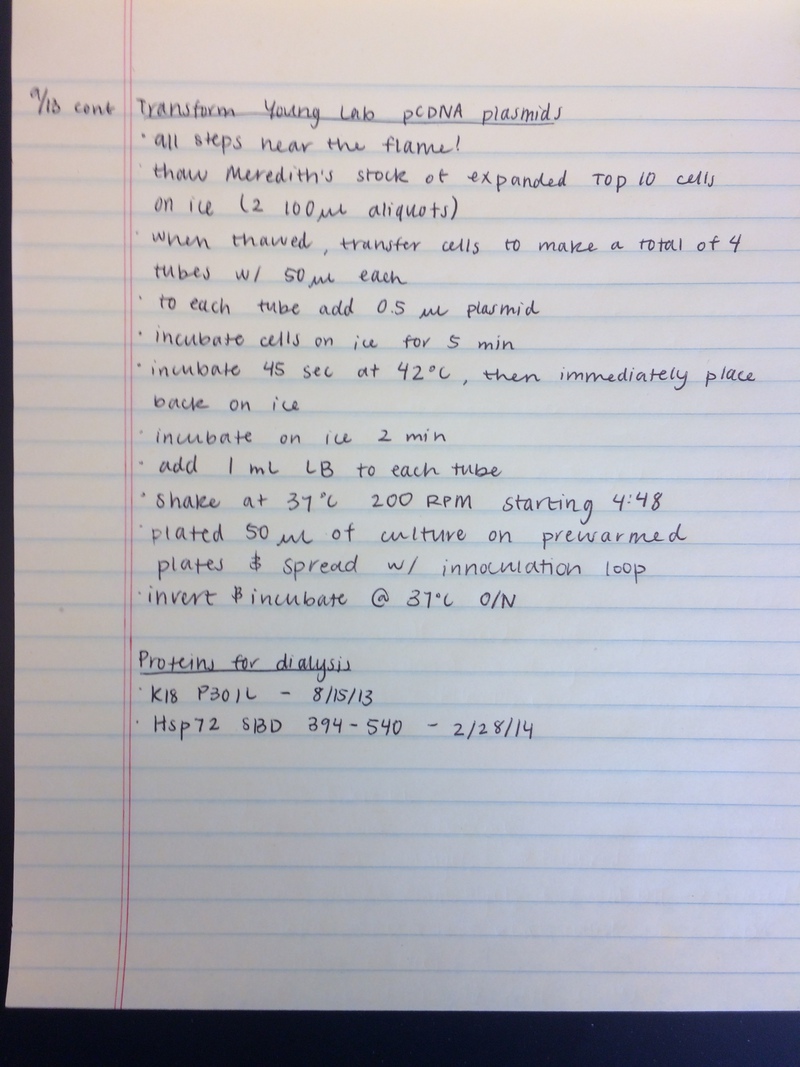 9/13 cont Transform Young Lab pCDNA plasmids
· all steps near the flame!
· thaw Meredith's stock of expanded TOP 10 cells
on ice (2 100 μl aliquots)
· when thawed, transfer cells to make a total of 4
tubes w/ 50 μl each
· to each tube add 0.5 μl plasmid
· incubate cells on ice for 5 min
· incubate 45 sec at 42°C, then immediately place
back on ice
· incubate on ice 2 min
· add 1 mL LB to each tube
· shake at 37°C 200 RPM starting 4:48
· plated 50 μl of culture on prewarmed
plates & spread w/ innoculation loop
· invert & incubate @ 37°C O/N
Proteins for dialysis
· K18 P301L - 8/15/13
· Hsp72 SBD 394-540 - 2/28/14